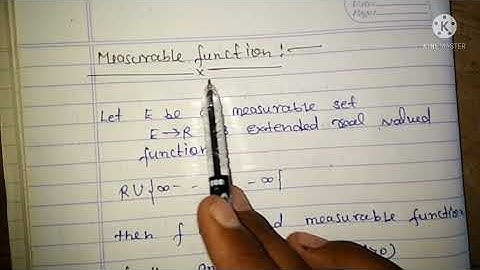 Measurable function :-
x
Let E be measurable set
E → R extended real valued
function
R U {∞ - - - -∞}
then f measurable function
KINEMASTER